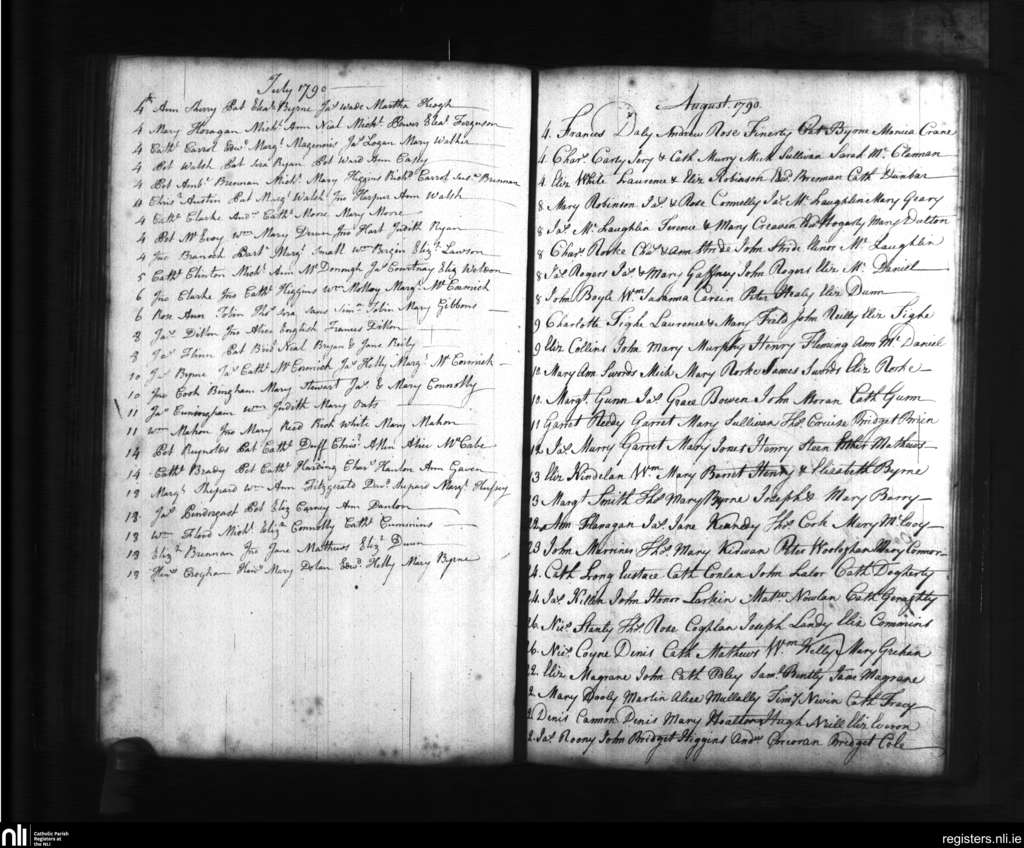 July 1790
4th Ann Sherry Pat Eleat Byrne Jas Wade Martha Keogh
4 Mary Horagan Michl Ann Nial Michl Bower Eleat Ferguson
4 Catht Carrol Edwd Margt Magennis Jas Logan Mary Walker
4 Pat Walsh Pat Ward Ann
4 Pat Ambe Brennan Michl Mary Higgins Richd Carrol Brennan
4 Christr Austin Pat Margt Walsh Jno Harper Ann Walsh
4 Catht Clarke Andw Catht Moore Mary Moore
4 Pat McEvoy Wm Mary Dunn Jno Hart Judith Ryan
4 Jno Branoch Bart Margt Small Wm Bergin Elizt Lawson
5 Catht Clinton Michl Ann McDonough Jas Courtnay Eliz Watson
6 Jno Clarke Jno Catht Higgins Wm Molloy Margt McCormick
6 Rose Ann Tobin Thos Simn Tobin Mary Gibbons
8 Jas Dillon Jno Alice English Frances Dillon
8 Jas Flinn Pat Brid Neal Bryan & Jane Reily
10 Jas Byrne Jas Catht McCormick Jas Kelly Margt McCormick
10 Jno Cook Bingham Mary Stewart Jas & Mary Connolly
11 Jas Cuningham Wm Judith Mary Oats
11 Wm Mahon Jno Mary Read Rich White Mary Mahon
14 Pat Reynolds Pat Catht Duff Christr Allen Alice McCabe
14 Catht Brady Pat Catht Harding Chas Hanlon Ann Gaven
18 Margt Shepard Wm Ann Fitzgerald Margt
18 Jas Pindergast Pat Eliz Carney Ann Danlon
18 Wm Flood Michl Eliza Connolly Catht Cummins
18 Elizt Brennan Jno Jane Matthews Elizt Dunn
18 Henry Croghan Henry Mary Dolan Edwd Kelly Mary Byrne
August 1790
4. Frances Daly Andrew Rose Finerty Pat Byrne Monica Crane
4 Chars Carty Jery & Cath Murry Mick Sullivan Sarah Mc Clannan
4 Eliz White Laurence & Eliz Robinson Edwd Brennan Cath Dunbar
8 Mary Robinson Jas & Rose Connelly Jas McLaughlin Mary Geary
8 Jas McLaughlin Terence & Mary Creaven Hogarty Mary Dutton
8 Chars Rorke Chas & Ann Stride John Stride Elinor McLaughlin
8 Jas Rogers Jas & Mary Gaffney John Rogers Eliz McDaniel
8 John Boyle Wm Susanna Carein Peter Healy Eliz Dunn
9 Charlotte Tighe Laurence & Mary Field John Reilly Eliz Tighe
9 Eliz Collins John Mary Murphy Henry Fleming Ann McDaniel
10 Mary Ann Swords Mick Mary Rorke James Swords Eliz Rorke
10. Margt Gunn Jas Grace Bowen John Moran Cath Gunn
11 Garret Reddy Garret Mary Sullivan Thos Creuise Bridget Brien
12 Jas Murry Garret Mary Jones Henry Steen Esther Mathews
13 Eliz Kindelan Wm Mary Barret Henry & Elizabeth Byrne
13 Margt Smith Thos Mary Byrne Joseph & Mary Barry
22 Ann Flanagan Jas Jane Kennedy Thos Cook Mary McEvoy
23 John Marrines Thos Mary Kidwan Peter Woologhan Mary Connor
24. Cath Long Eustace Cath Conlan John Lalor Cath Dogherty
24. Jas Killen John Honor Larkin Matw Nowlan Cath Geraghty
26. Nics Stanly Thos Rose Coghlan Joseph Landy Eliz Commins
26. Nics Coyne Denis Cath Mathews Wm Kelly Mary Grehan
22. Eliz Magrane John Cath Paley Saml Bently Jane Magrane
2 Mary Dooly Martin Alice Mullally Timy Nevin Cath Tracy
2 Denis Cannon Denis Mary Heatton Hugh Neill Eliz Everon
2. Jas Roony John Bridget Higgins Andw Corcoran Bridget Cole
nli
Catholic Parish
Registers at
the NLI
registers.nli.ie